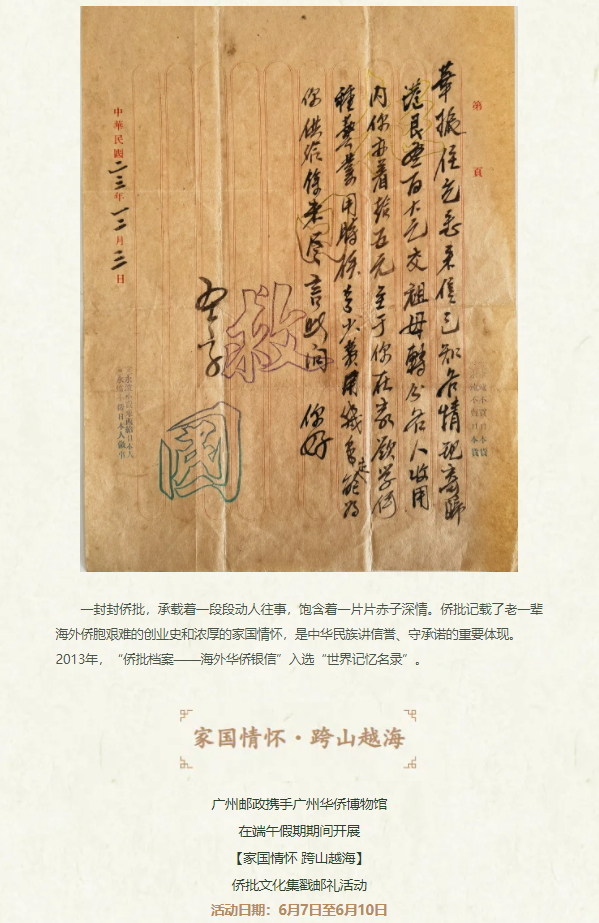 第 頁
華振侄知悉来信已知各情現寄歸
港艮壹百大元交祖母轉分各人收用
内你亦着給五元至于你在家欲学何
種藝業用時係幸少費用我亦能為
你供給餘未尽言此问 你好
救
國
中華民國二三年十二月三日
一封封侨批，承载着一段段动人往事，饱含着一片片赤子深情。侨批记载了老一辈
海外侨胞艰难的创业史和浓厚的家国情怀，是中华民族讲信誉、守承诺的重要体现。
2013年，“侨批档案——海外华侨银信”入选“世界记忆名录”。
家国情怀·跨山越海
广州邮政携手广州华侨博物馆
在端午假期期间开展
【家国情怀 跨山越海】
侨批文化集戳邮礼活动
活动日期：6月7日至6月10日